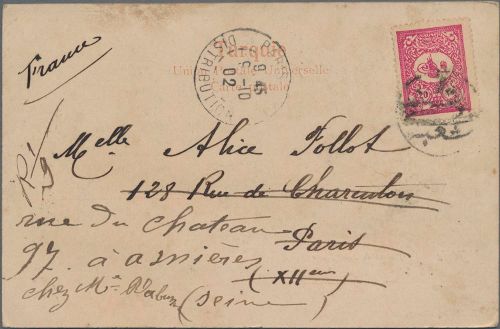 France
Turquie
Union Postale Universelle
Carte Postale
DISTRIBUTION
9 45
9-10
02
Melle Alice Follot
128 Rue de Charenton
rue du Chateau
Paris
97 à asnières
(XIIème)
chez Mr
(Seine)